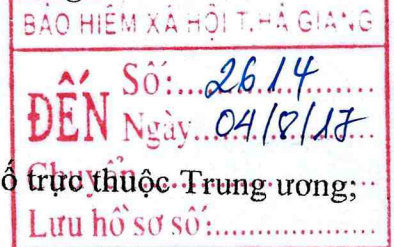 BẢO HIỂM XÃ HỘI T.HÀ GIANG
ĐẾN
Số:...2614
Ngày...04/8/17
Chuyển
ố trực thuộc Trung ương;
Lưu hồ sơ số: